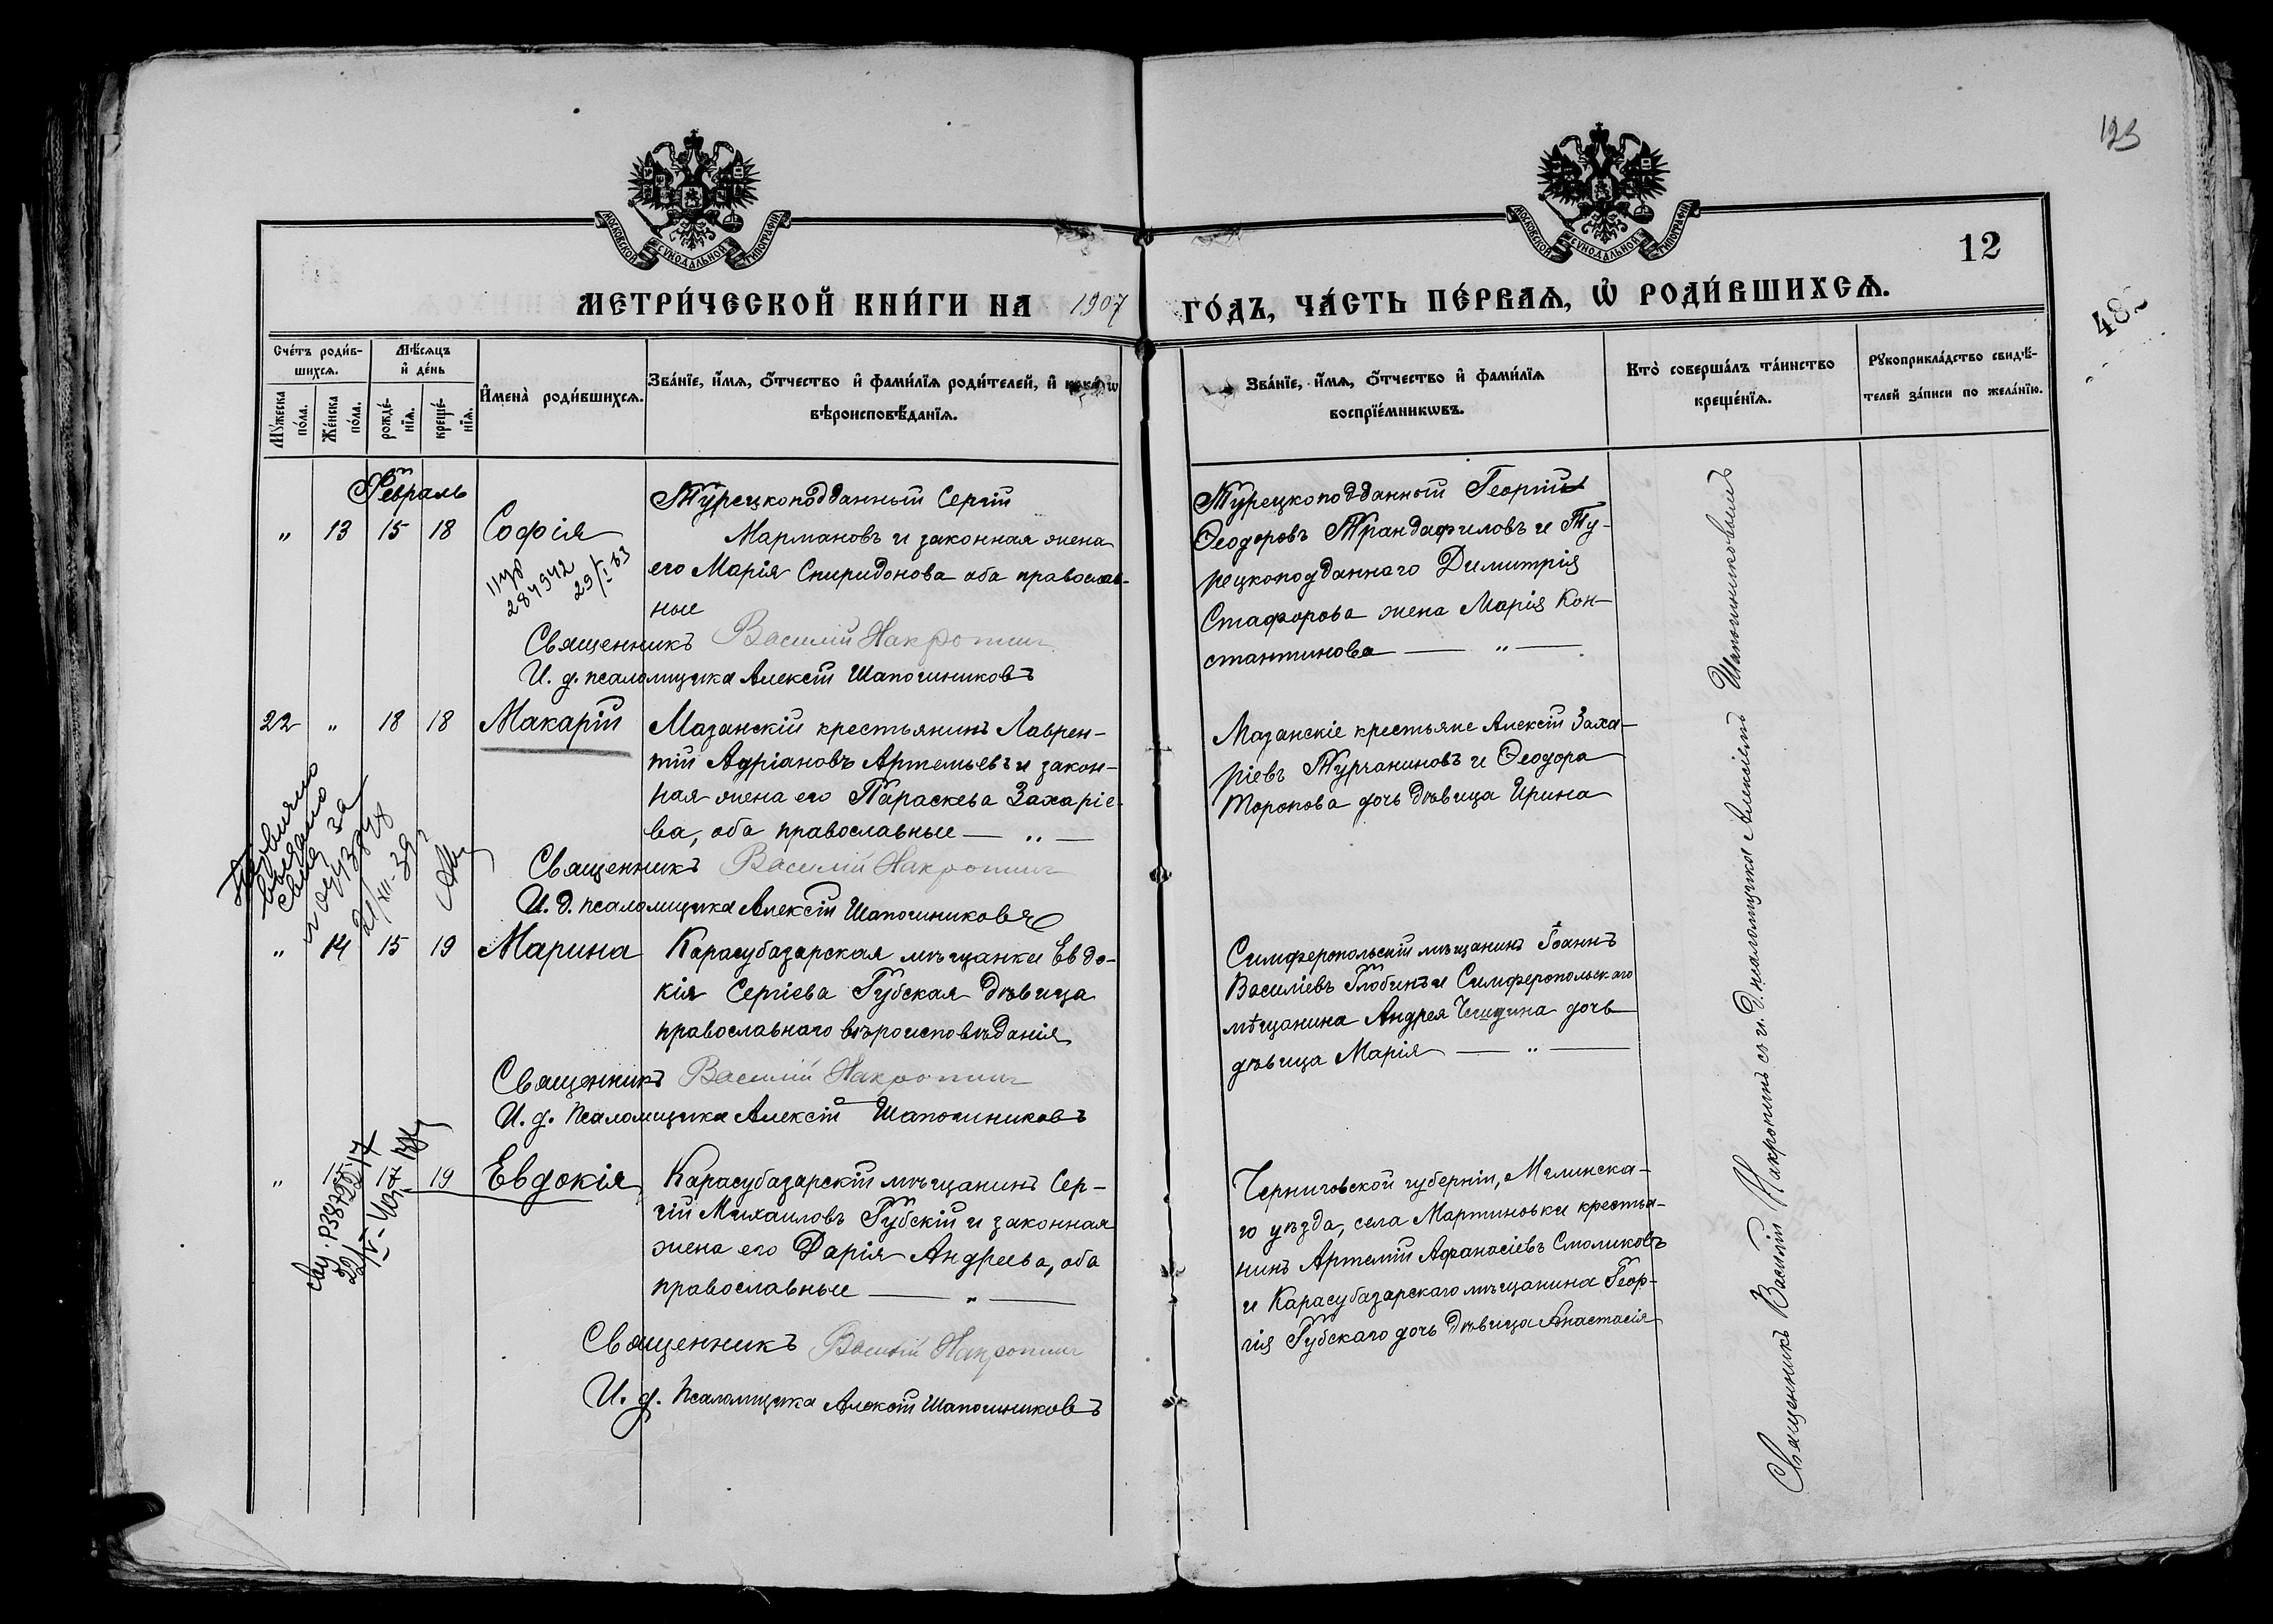 123
МОСКОВСКОЙ СѴНОДАЛЬНОЙ ТИПОГРАФІИ
МОСКОВСКОЙ СѴНОДАЛЬНОЙ ТИПОГРАФІИ
12
МЕТРИ́ЧЕСКОЙ КНИ́ГИ НА 1907 ГО́ДЪ, ЧА́СТЬ ПЕ́РВАѦ, Ѡ РОДИ́ВШИХСѦ.
48
Сче́тъ роди́в-
шихсѧ.
Мѣ́сѧцъ
и де́нь
Мꙋ́жеска
по́ла.
Же́нска
по́ла.
рожде́-
нїѧ.
креще́-
нїѧ.
Имена̀ роди́вшихсѧ.
Зва́нїе, и́мѧ, ѻ҆́тчество и фами́лїѧ роди́телей, и
вѣроисповѣ́данїѧ.
Зва́нїе, и́мѧ, ѻ҆́тчество и фами́лїѧ
воспрїе́мникѡвъ.
Кто̀ соверша́лъ та́инство
креще́нїѧ.
Рꙋкоприкла́дство свидѣ́-
телей за́писи по жела́нїю.
Февраль
" 13 15 18 Софія
284942
29/I 53
Турецкоподданный Сергій
Мармановъ и законная жена
его Марія Спиридонова оба православ-
ные
Священникъ Василій Накропин
И. д. псаломщика Алексій Шапошниковъ
Турецкоподданный Георгій
Ѳеодоровъ Трандафиловъ и Ту-
рецкоподданнаго Димитрія
Стафорова жена Марія Кон-
стантинова — " —
22 " 18 18 Макарій
Мазанскій крестьянинъ Лаврен-
тій Адріановъ Артемьевъ и закон-
ная жена его Параскева Захаріе-
ва, оба православные — " —
Священникъ Василій Накропин
И. д. псаломщика Алексій Шапошниковъ
Мазанскіе крестьяне Алексій Заха-
ріевъ Турчаниновъ и Ѳеодора
Торокова дочь дѣвица Ирина
за
21/XII-39
" 14 15 19 Марина
Карасубазарская мѣщанка Евдо-
кія Сергіева Губская дѣвица
православнаго вѣроисповѣданія
Священникъ Василій Накропин
И. д. псаломщика Алексій Шапошниковъ
Симферопольскій мѣщанинъ Іоаннъ
Василіевъ Глобинъ и Симферопольскаго
мѣщанина Андрея дочь
дѣвица Марія — " —
" 15 17 19 Евдокія
Карасубазарскій мѣщанинъ Сер-
гій Михаиловъ Губскій и законная
жена его Дарія Андреева, оба
православные — " —
Священникъ Василій Накропин
И. д. псаломщика Алексій Шапошниковъ
Черниговской губерніи, Мглинска-
го уѣзда, села Мартиновки крестья-
нинъ Артемій Афанасіевъ Смоликовъ
и Карасубазарскаго мѣщанина Геор-
гія Губскаго дочь дѣвица Анастасія
Священникъ Василій Накропинъ съ и. д. псаломщика Алексіемъ Шапошниковымъ